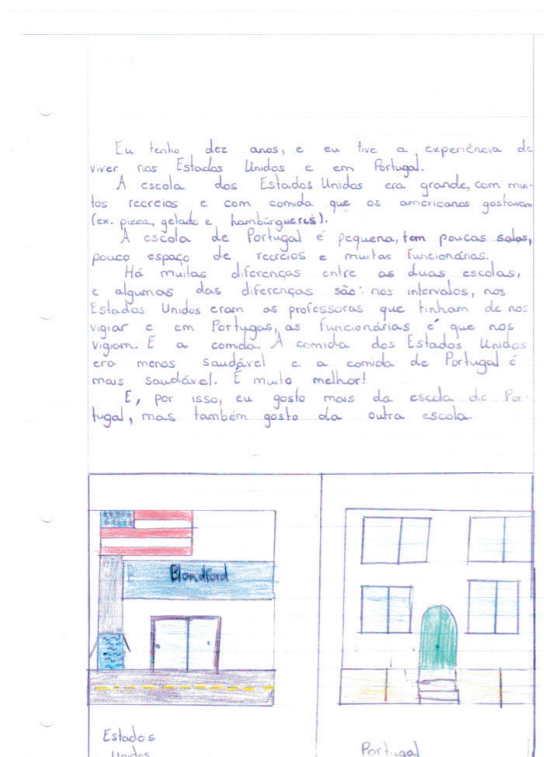 Eu tenho dez anos, e eu tive a experiência de
viver nos Estados Unidos e em Portugal.
A escola dos Estados Unidos era grande, com mui-
tos recreios e com comida que os americanos gostavam
(ex. pizza, gelado e hambúrgueres).
A escola de Portugal é pequena, tem poucas salas,
pouco espaço de recreios e muitas funcionárias.
Há muitas diferenças entre as duas escolas,
e algumas das diferenças são: nos intervalos, nos
Estados Unidos eram os professoras que tinham de nos
vigiar e em Portugas, as funcionárias é que nos
vigiam. E a comida. A comida dos Estados Unidos
era menos saudável e a comida de Portugal é
mais saudável. É muito melhor!
E, por isso, eu gosto mais da escola de Por-
tugal, mas também gosto da outra escola
Blandford
Estados
Unidos
Portugal